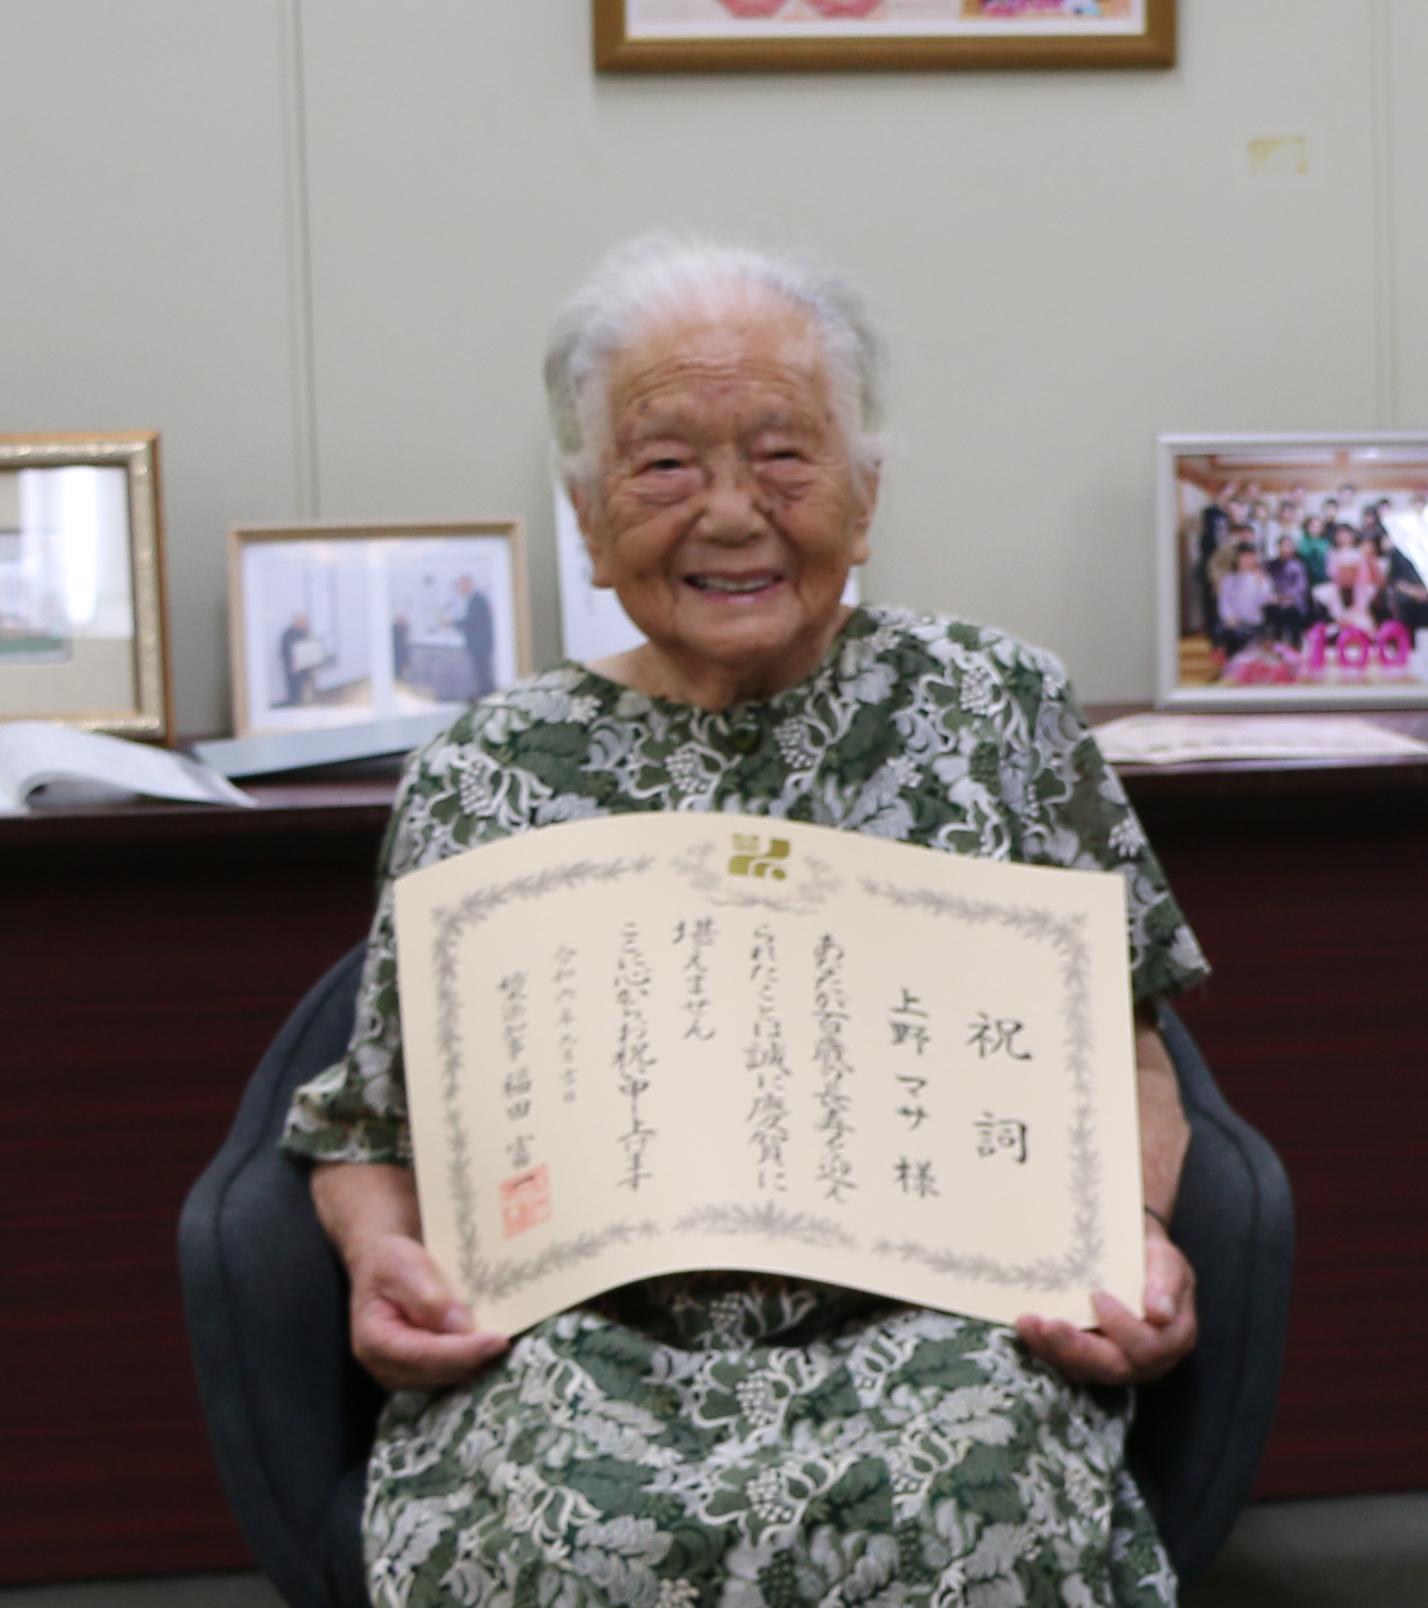 祝詞
上野マサ様
あなたが百歳の長寿を迎え
られたことは誠に慶賀に
堪えません
ここに心からお祝申し上げます
令和六年九月
稲田 富
100